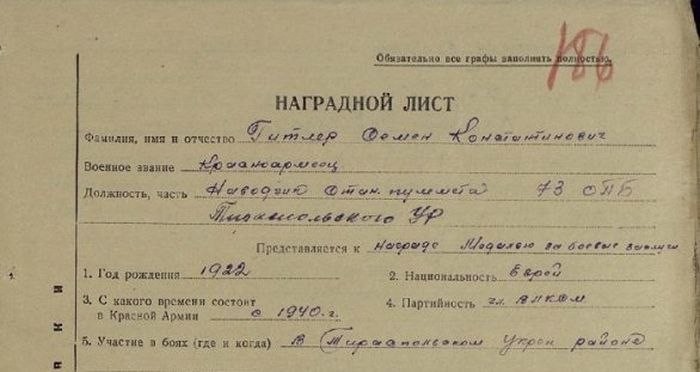 Обязательно все графы заполнить полностью.
186
НАГРАДНОЙ ЛИСТ
Фамилия, имя и отчество Гитлер Семен Константинович
Военное звание Красноармеец
Должность, часть Наводчик Стан. пулмета 73 ОПБ
Тираспольского УР
Представляется к награде Медалью за боевые заслуги
1. Год рождения 1922
2. Национальность Еврей
3. С какого времени состоит
в Красной Армии с 1940 г.
4. Партийность чл. ВЛКСМ
5. Участие в боях (где и когда) В Тираспольском Укреп районе